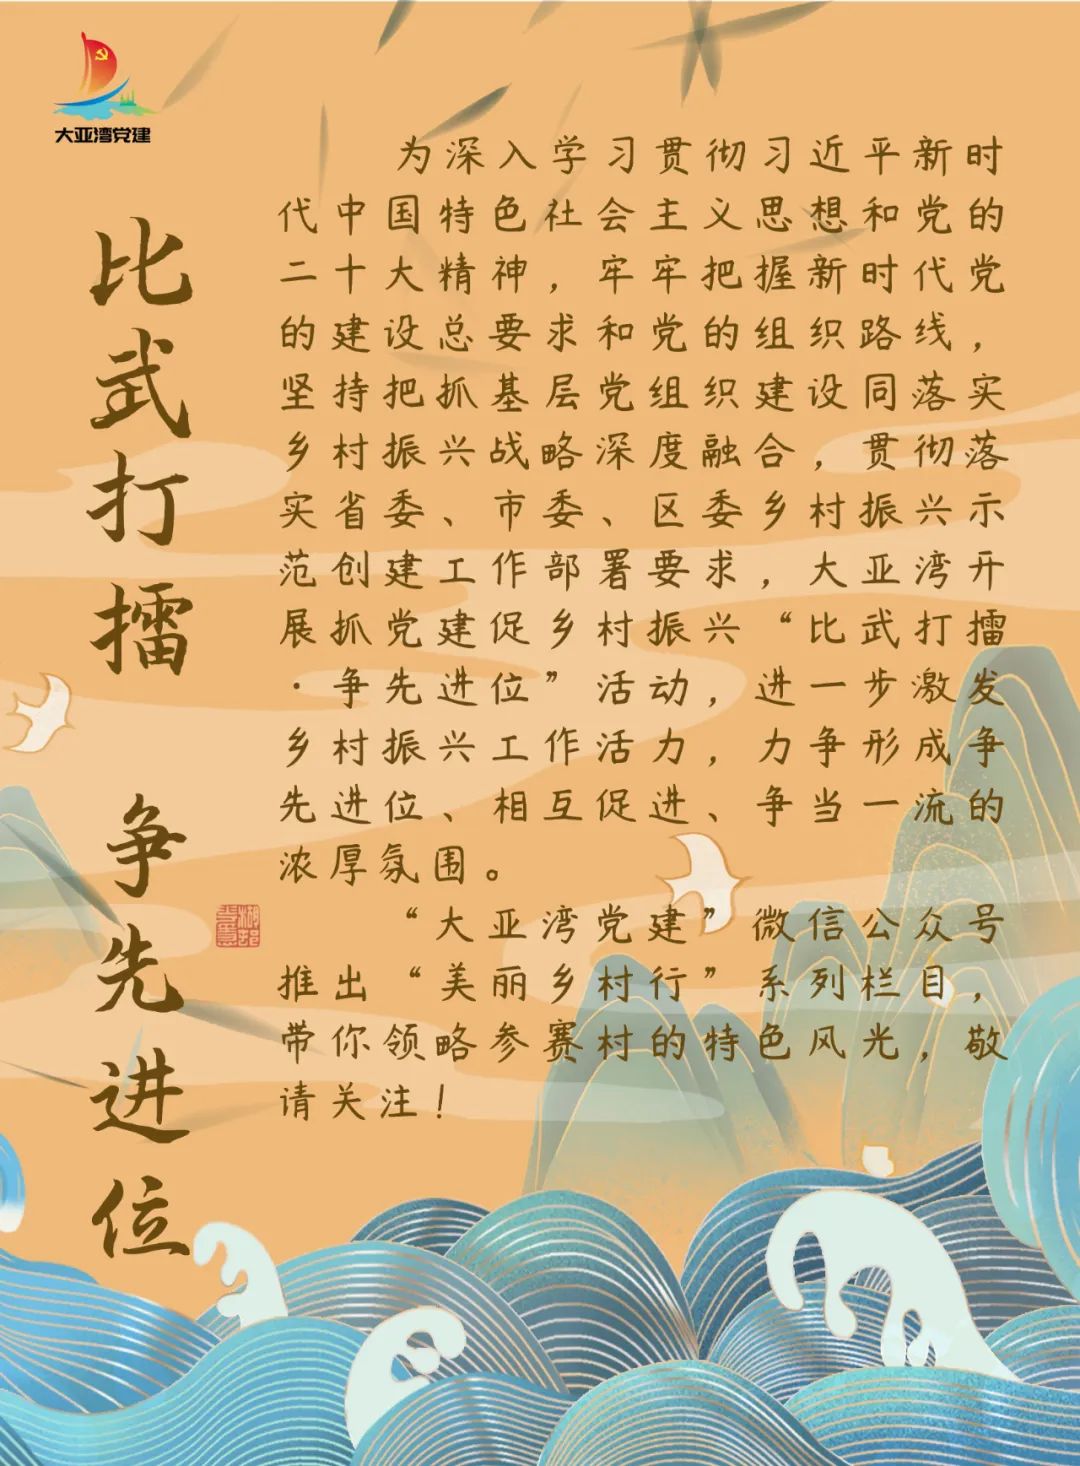 大亚湾党建
比武打擂 争先进位
为深入学习贯彻习近平新时
代中国特色社会主义思想和党的
二十大精神，牢牢把握新时代党
的建设总要求和党的组织路线，
坚持把抓基层党组织建设同落实
乡村振兴战略深度融合，贯彻落
实省委、市委、区委乡村振兴示
范创建工作部署要求，大亚湾开
展抓党建促乡村振兴“比武打擂
·争先进位”活动，进一步激发
乡村振兴工作活力，力争形成争
先进位、相互促进、争当一流的
浓厚氛围。
“大亚湾党建”微信公众号
推出“美丽乡村行”系列栏目，
带你领略参赛村的特色风光，敬
请关注！